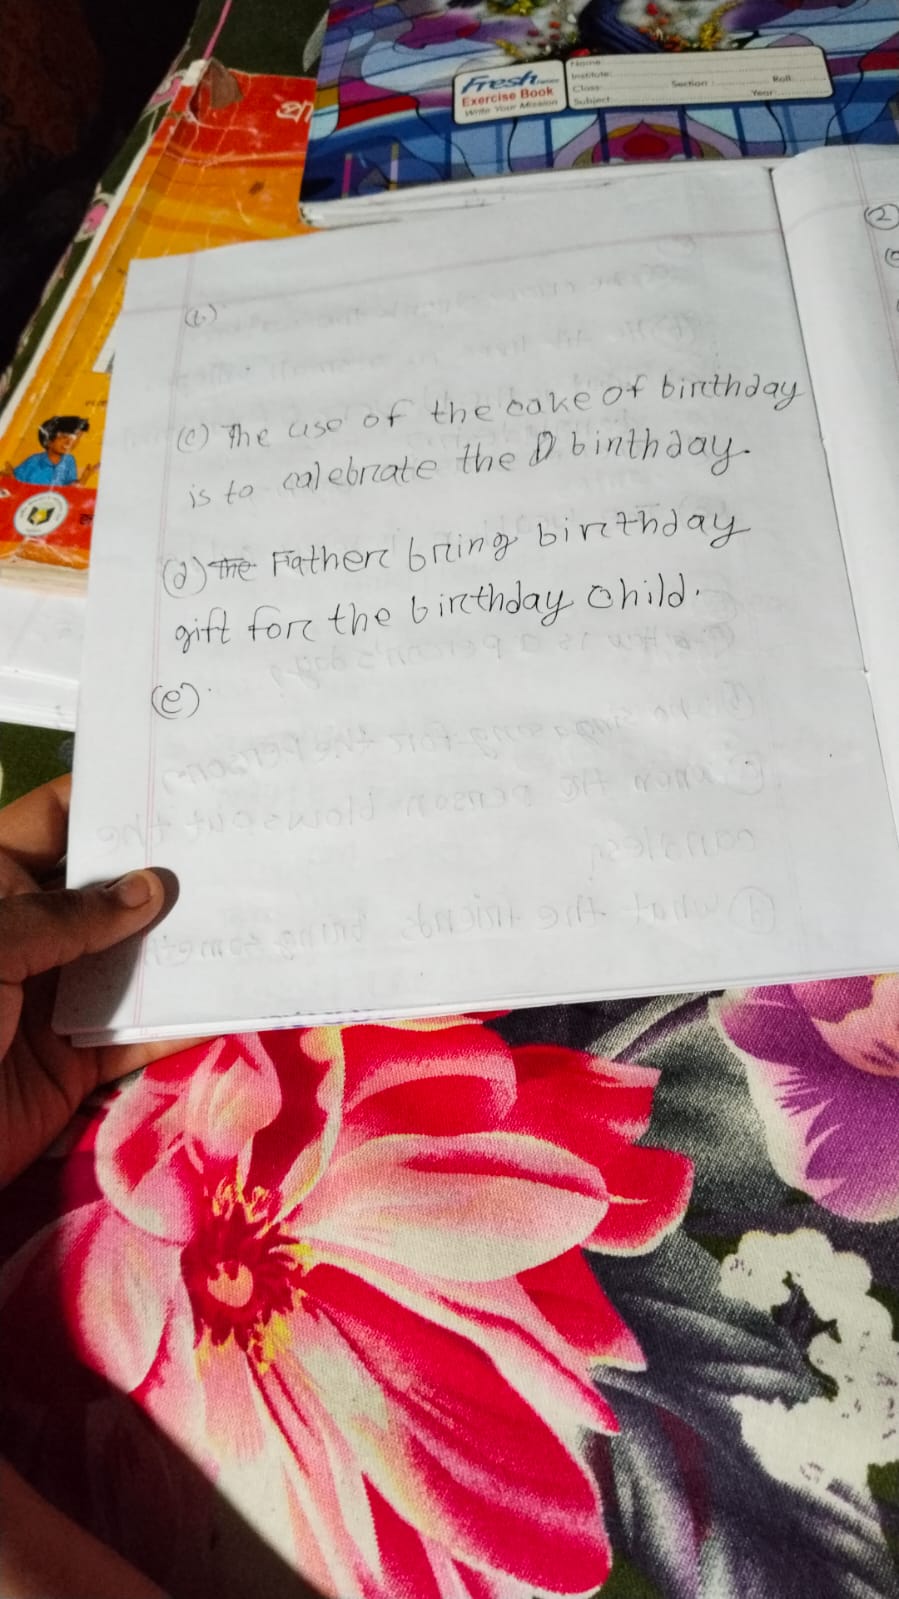 Fresh
Exercise Book
Write Your Mission
Name
Institute:
Class: Section: Roll:
Subject: Year:
(2)
(b)
(c) The use of the cake of birthday
is to calebrate the D binthday.
(d) the Father bring birthday
gift for the birthday child.
(e)